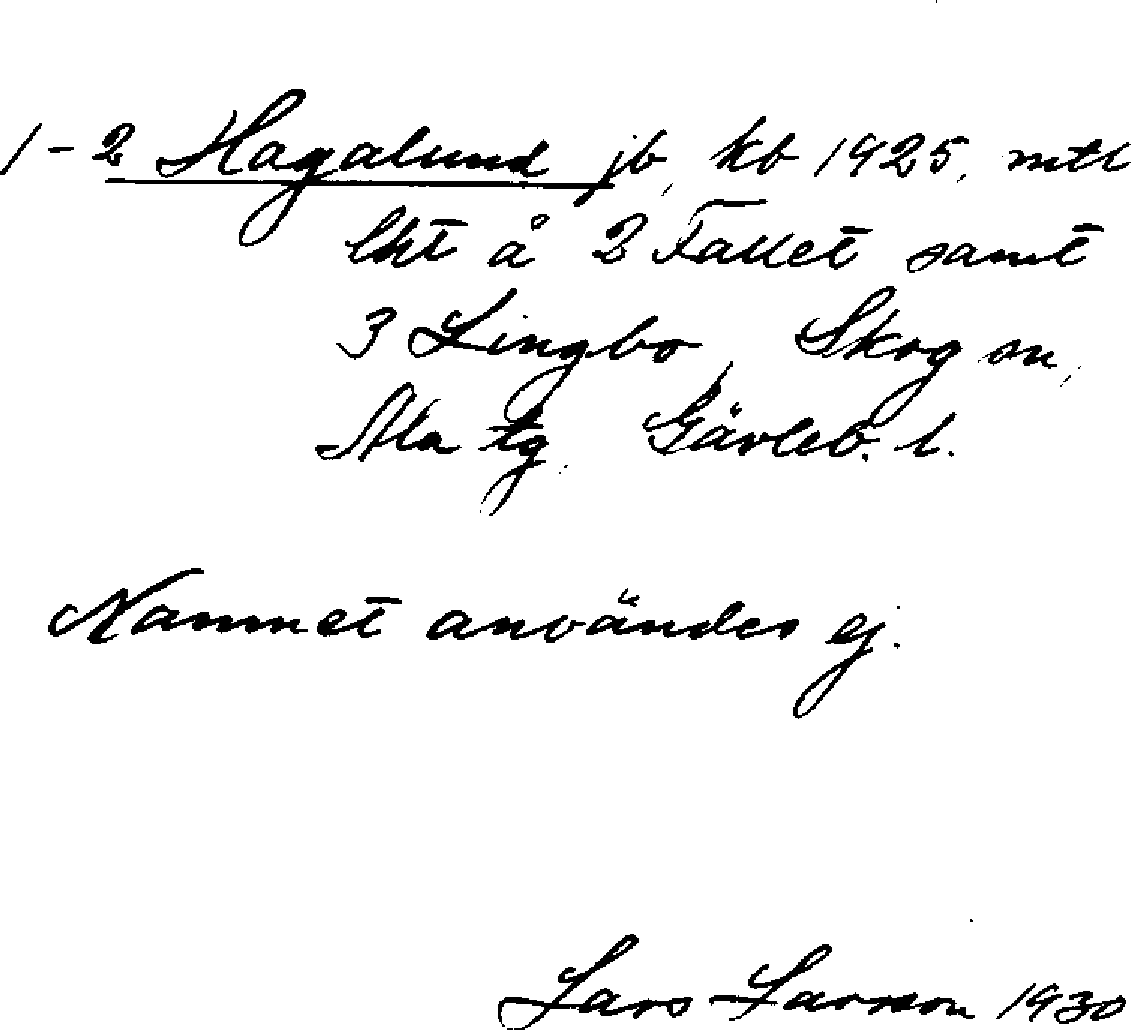 1-2 Hagalund jb, kb 1925, mtl
lht å 2 Fallet samt
3 Lingbo, Skog sn,
Ala tg. Gävleb. l.
Namnet användes ej.
Lars Larsson 1930